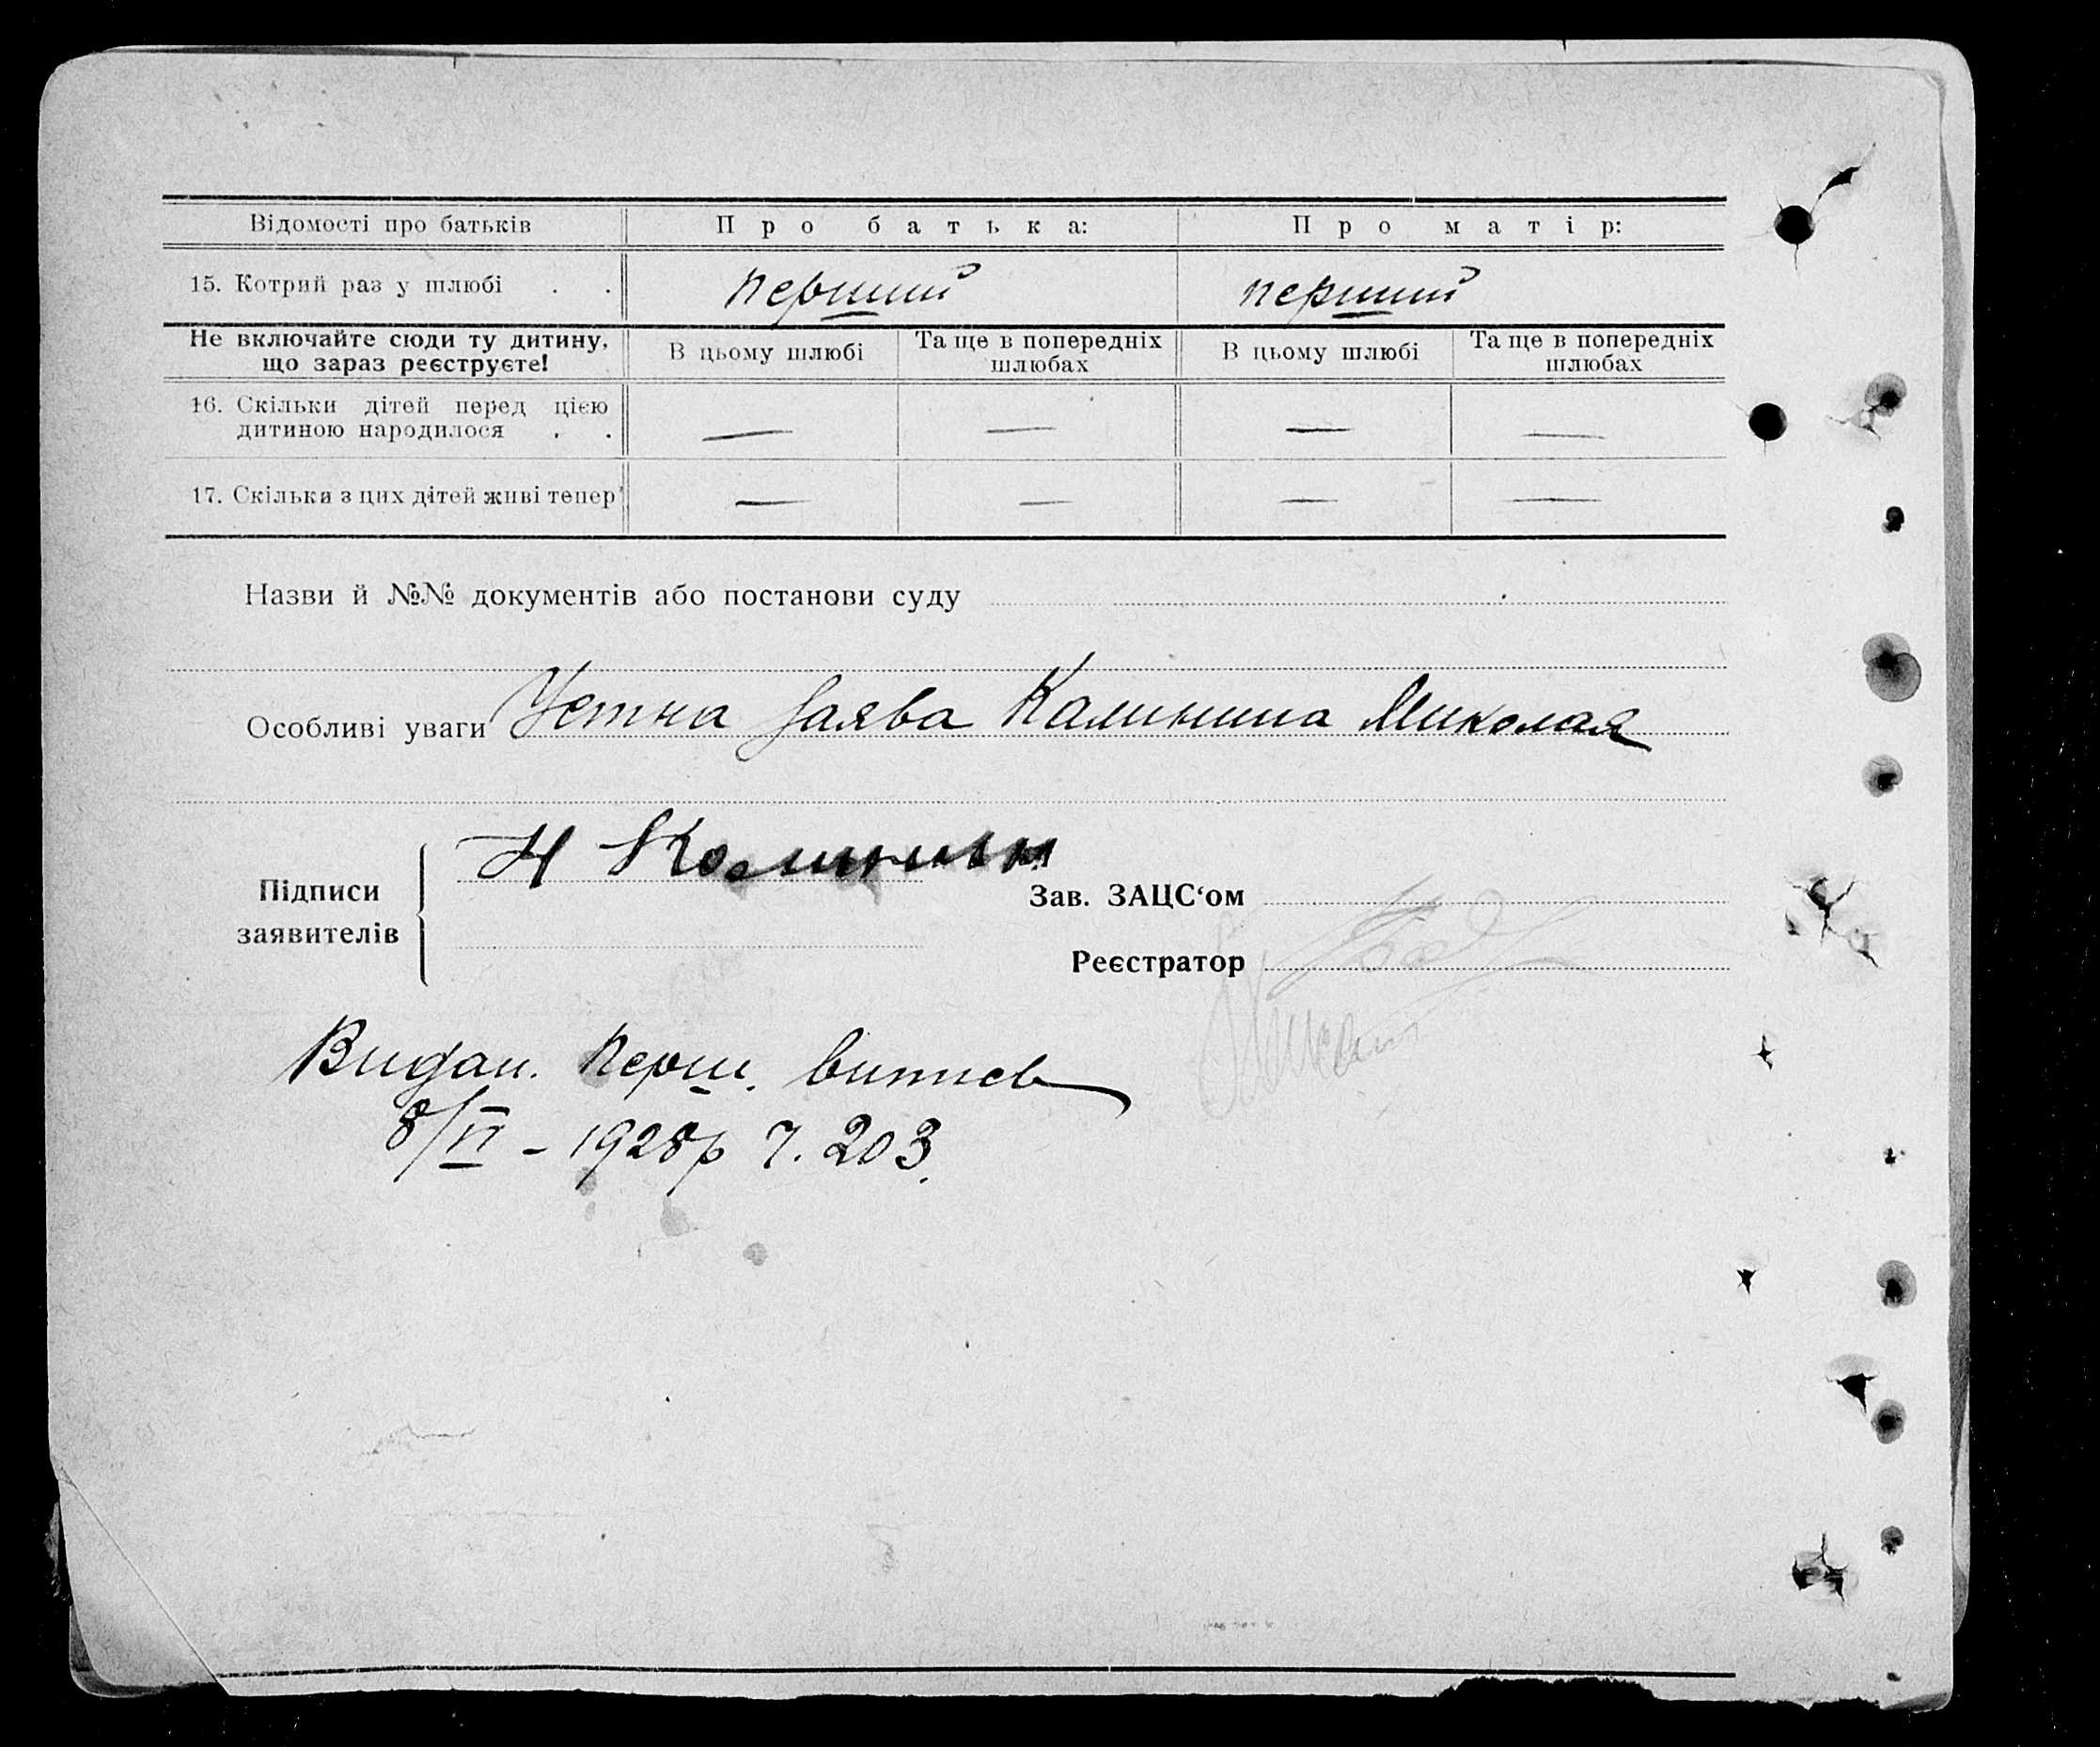 Відомості про батьків Про батька: Про матір:
15. Котрий раз у шлюбі . . перший перший
Не включайте сюди ту дитину, що зараз реєструєте! В цьому шлюбі Та ще в попередніх шлюбах В цьому шлюбі Та ще в попередніх шлюбах
16. Скільки дітей перед цією
дитиною народилося . . — — — —
17. Скільки з цих дітей живі тепер — — — —
Назви й №№ документів або постанови суду
Особливі уваги Устна заява Калинина Миколая
Н Калинин
Підписи
заявителів
Зав. ЗАЦС‘ом
Реєстратор
Видан. перш. витпсь
8/VI - 1928р Ч. 203.